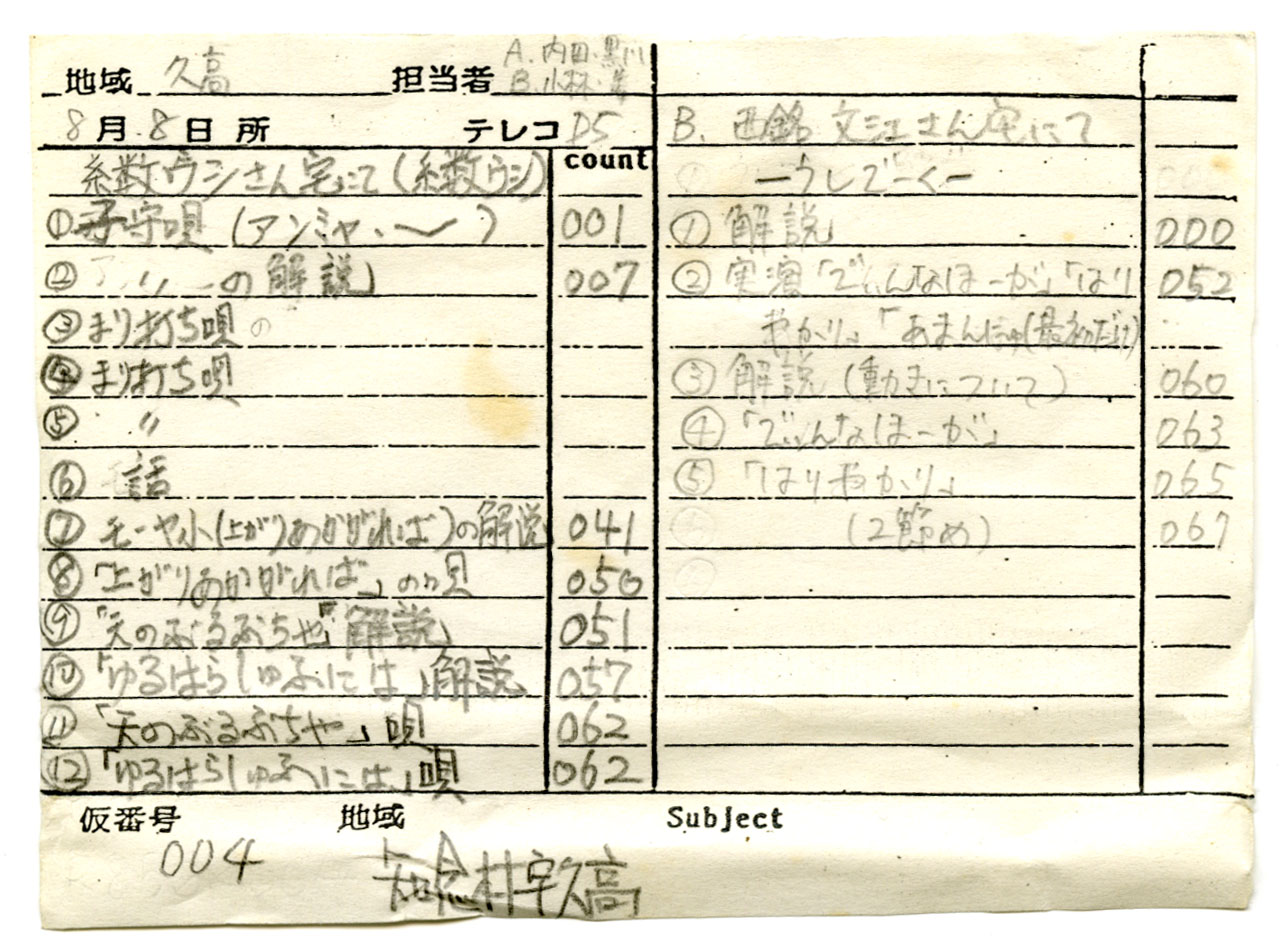 地域 久高 担当者 A. 内田・黒川
B. 小林・
8月8日 所 テレコ D5
糸数ウシさん宅にて(糸数ウシ) count
① 子守唄 (アンミャ、〜) 001
② の解説」 007
③ まり打ち唄の
④ まり打ち唄
⑤ 〃
⑥ 話
⑦ モーヤ小(上がりあかがれば)の解説 041
⑧「上がりあかがれば」の唄 050
⑨「天のぶるぶちや」解説 051
⑩「ゆるはらしゅふには」解説 057
⑪「天のぶるぶちや」唄 062
⑫「ゆるはらしゅふには」唄 062
B. 西銘文江さん宅にて
ーうしでーくー
① 解説 000
② 実演「でぃんなほーが」「はり 052
やかり」「あまんにゅ(最初だけ)
③ 解説(動きについて) 060
④「でぃんなほーが」 063
⑤「はりやかり」 065
(2節め) 067
仮番号 地域 Subject
004 知念村字久高